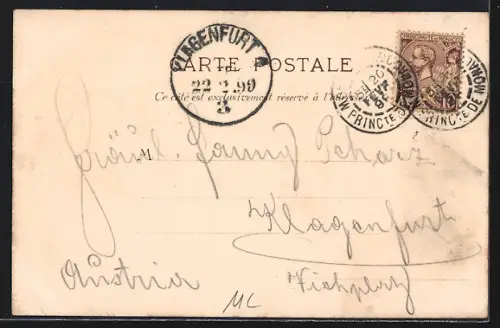 KLAGENFURT
CARTE POSTALE
22 2 99
Ce côté est exclusivement réservé à l'adresse
10
PRINCTÉ DE MONACO
M
Fräul. Fanny Scharz
Klagenfurt
Austria
ML